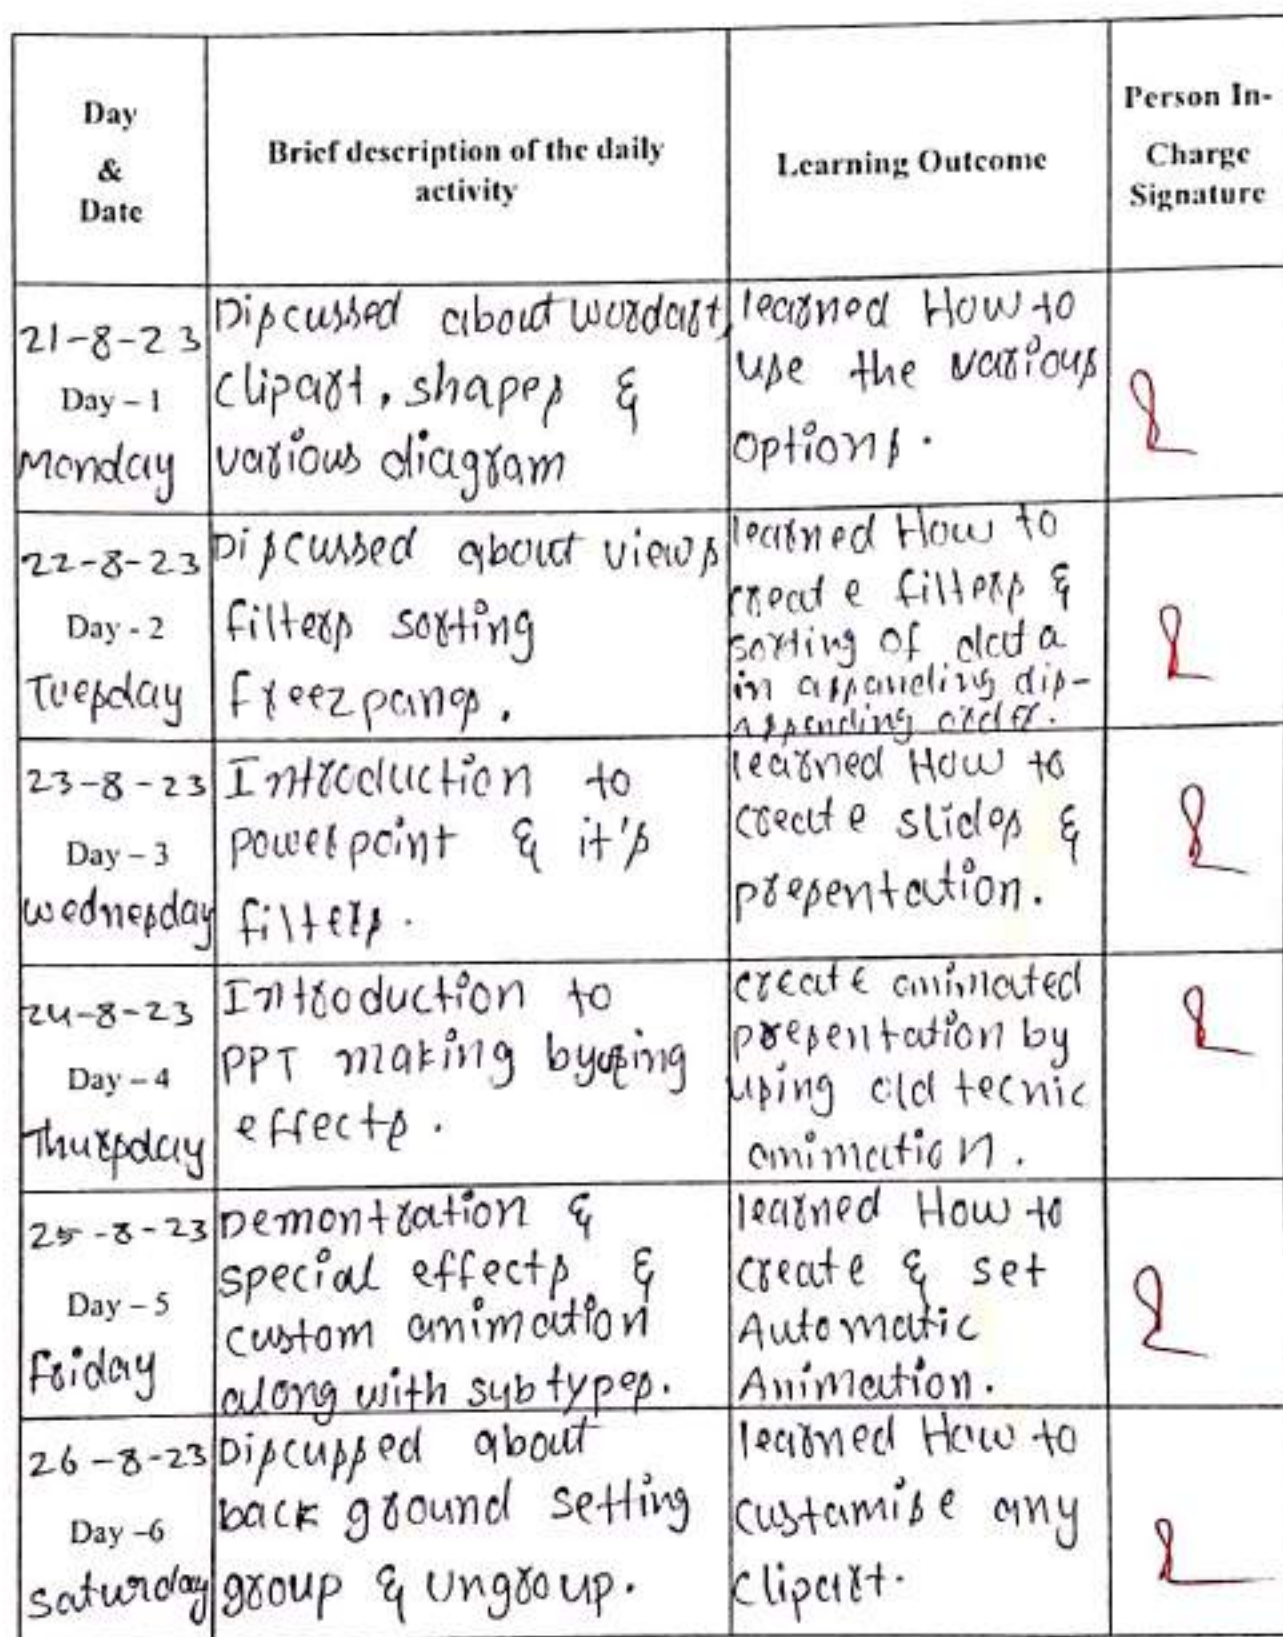 Day
&
Date
Brief description of the daily
activity
Learning Outcome
Person In-
Charge
Signature
21-8-23
Day – 1
Monday
Discussed about wordart,
clipart, shapes &
various diagram
learned How to
use the various
options.
22-8-23
Day - 2
Tuesday
Discussed about views
filters sorting
freez panes.
learned How to
create filters &
sorting of data
in assanding dis-
assending order.
23-8-23
Day – 3
wednesday
Introduction to
powerpoint & it's
filters.
learned How to
create slides &
presentation.
24-8-23
Day – 4
Thursday
Introduction to
PPT making by using
effects.
create animated
presentation by
using old tecnic
animation.
25-8-23
Day – 5
friday
Demontration &
special effects &
custom animation
along with subtypes.
learned How to
create & set
Automatic
Animation.
26-8-23
Day -6
saturday
Discussed about
back ground setting
group & ungroup.
learned How to
custamise any
clipart.